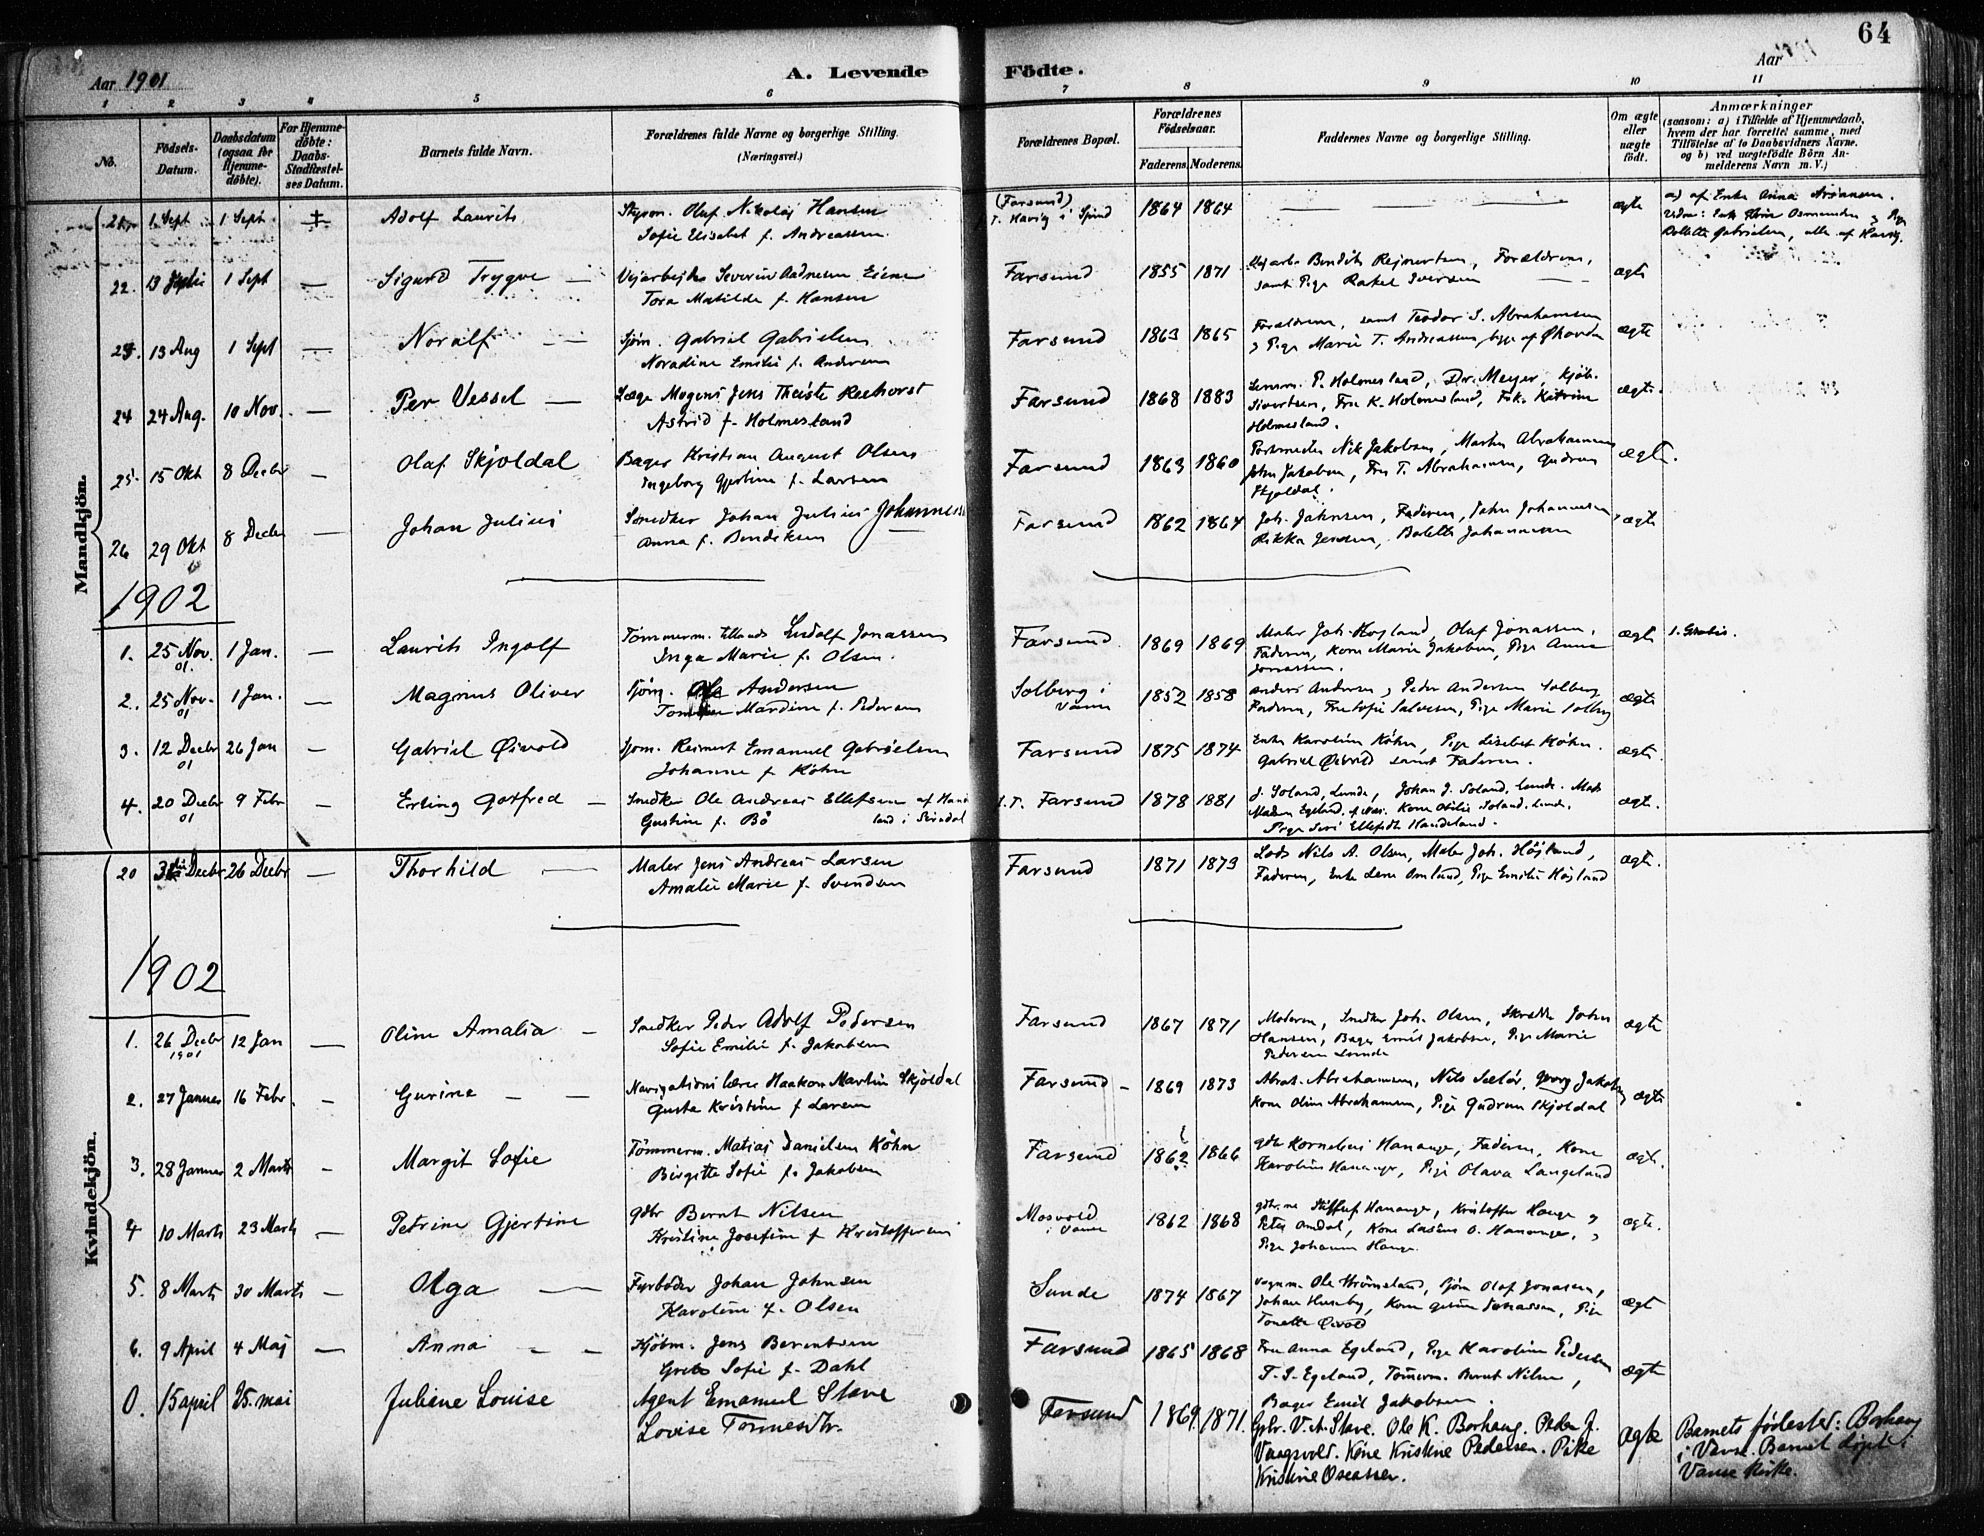 64
Aar 1901
A. Levende
Födte.
Aar
1 2 3 4 5 6 7 8 9 10 11
No.
Födsels-Datum.
Daabsdatum (ogsaa for Hjemme-döbte).
For Hjemme-döbte: Daabs-Stadfæstel-ses Datum.
Barnets fulde Navn.
Forældrenes fulde Navne og borgerlige Stilling.
(Næringsvei.)
Forældrenes Bopæl.
Forældrenes Födselsaar.
Faderens. Moderens.
Faddernes Navne og borgerlige Stilling.
Om ægte eller uægte födt.
Anmærkninger
(saasom: a) i Tilfælde af Hjemmedaab,
hvem der har forrettet samme, med
Tilföielse af to Daabsvidners Navne.
og b) ved uægtefödte Börn An-
melderens Navn m. V.)
Mandkjön.
21 1 Sept 1 Sept ‡ Adolf Laurits
Olaf Nikolaj Hansen
Sofie Elisabet f. Andreassen
(Farsund) i Spind 1864 1864 ægte
a) af Enke Anna
22. 1 Sept — Sigurd Trygve —
Severin Aadnesen Eiene
Tora Matilde f. Hansen
Farsund 1855 1871
Bendik Rejnertsen, Forældrene,
samt Pige Rakel Iversen
ægte
13 Aug 1 Sept — Noralf
Sjøm. Gabriel Gabrielsen
Noradine Emilie f. Andersen
Farsund 1863 1865
Forældrene, samt Teodor S. Abrahamsen
Pige Marie T. Andreassen,
ægte
24 24 Aug. 10 Nov. — Per Vessel —
Læge Mogens Jens Theiste Reehorst
Astrid f. Holmesland
Farsund 1868 1883
P. Holmesland, Dr. Meyer, Kjøb.
Sivertsen, Fru K. Holmesland, Frk. Katrine
Holmesland.
ægte
25 15 Okt 8 Decbr — Olaf Skjoldal
Bager Kristian August Olsen
Ingeborg Gjertine f. Larsen
Farsund 1863 1860
Nik Jakobsen, Martin Abrahamsen
John Jakobsen, Fru T. Abrahamsen, Gudrun
Skjoldal.
ægte.
26 29 Okt 8 Decbr — Johan Julius
Snedker Johan Julius Johannesen
Anna f. Bendiksen
Farsund 1862 1864
Joh. Jahnsen, Faderen, John Johannesen
Rikka Jensen, Bolette Johannesen
ægte
1902
1. 25 Nov. 01. 1 Jan. — Laurits Ingolf
Tömmerm. Ludolf Jonassen
Inga Marie f. Olsen.
Farsund 1869 1869
Maler Joh. Højland, Olaf Jonassen,
Faderen, Kone Marie Jakobsen, Pige Anna
Jonassen.
ægte
2. 25 Nov. 01 1 Jan. — Magnus Oliver
Sjöm. Ole Andersen
Mardine f. Pedersen
Solberg i Vanse 1852 1858
Anders Andersen, Peder Andersen Solberg
Faderen, Fru Sofie Salvesen, Pige Marie Solberg
ægte
3. 12 Decbr 01 26 Jan — Gabriel Øivold
Sjöm. Reinert Emanuel Gabrielsen
Johanne f. Köhn
Farsund 1875 1874
Enke Karoline Köhn, Pige Lisebet Köhn.
Gabriel Øivold samt Faderen.
ægte.
4. 20 Decbr 01 9 Febr — Erling Gotfred —
Snedker Ole Andreas Ellefsen af Hande
land i Siredal
Gustine f. Bö
Farsund 1878 1881
J. Soland, Lunde, Johan J. Soland, Lunde. Mads
Madsen Egeland, Kone Otilie Soland, Lunde.
Pige Siri Ellefsdtr Handeland.
ægte.
Kvindekjön.
20 Decbr 26 Decbr — Thorhild —
Maler Jens Andreas Larsen
Amalie Marie f. Svendsen
Farsund 1871 1873
Lods Nils A. Olsen, Maler Joh. Højland,
Faderen, Enke Lene Omland, Pige Emilie Højland
ægte.
1902
1. 26 Decbr 1901 12 Jan — Oline Amalia —
Snedker Peder Adolf Pedersen
Sofie Emilie f. Jakobsen
Farsund 1867 1871
Moderen, Snedker Joh. Olsen, Skrædder Johan
Hansen, Bager Emil Jakobsen, Pige Marie
Pedersen Lunde
ægte
2. 27 Januar 16 Febr. — Gurine — —
Navigationslærer Haakon Martin Skjoldal
Gusta Kristine f Larsen
Farsund — 1869 1873
Abrah. Abrahamsen, Nils Sælør, Georg Jakobsen
Kone Oline Abrahamsen, Pige Gudrun Skjoldal
ægte
3. 28 Januar 2 Marts — Margit Sofie
Tömmerm. Matias Danielsen Köhn
Birgitte Sofie f. Jakobsen
Farsund 1862 1866
Gbr Kornelius Hananger, Faderen, Kone
Karoline Hananger, Pige Olava Langeland
ægte.
4 10 Marts 23 Marts — Petrine Gjertine
Gbr Bernt Nilsen
Kristine Josefine f Kristoffersen
Mosvold i Vanse 1862 1868
Hananger, Kristoffer Hauge
Peter Omdal, Kone O. Hananger,
Pige Johanne Hauge.
ægte.
5. 8 Marts 30 Marts — Olga —
Fyrböder Johan Johnsen
Karoline f. Olsen
Sunde 1874 1867
Vognm. Ole Strömsland, Sjöm Olaf Jonassen,
Johan Huseby, Kone Jonassen, Pige
Tonette Øivold
ægte
6. 9 April 4 Maj — Anna — —
Kjöbm. Jens Berentsen
Grete Sofie f. Dahl
Farsund 1865 1868
Fru Anna Egeland, Pige Karoline Pedersen
T. S. Egeland, Tömrm. Bernt Nilsen,
Bager Emil Jakobsen.
ægte
0. 15 april 25. mai Juliane Louise
Agent Emanuel Stave
Lovise Tønnesdtr.
Farsund 1869. 1871.
Gbr. V. A. Stave. Ole K. Borhaug. Peder J.
Vaagsvold. Kone Kristine Pedersen. Pike
Kristine Oseassen.
ægte
Barnets fødested: Borhaug
i Vanse. Barnet døpt i
Vanse Kirke.